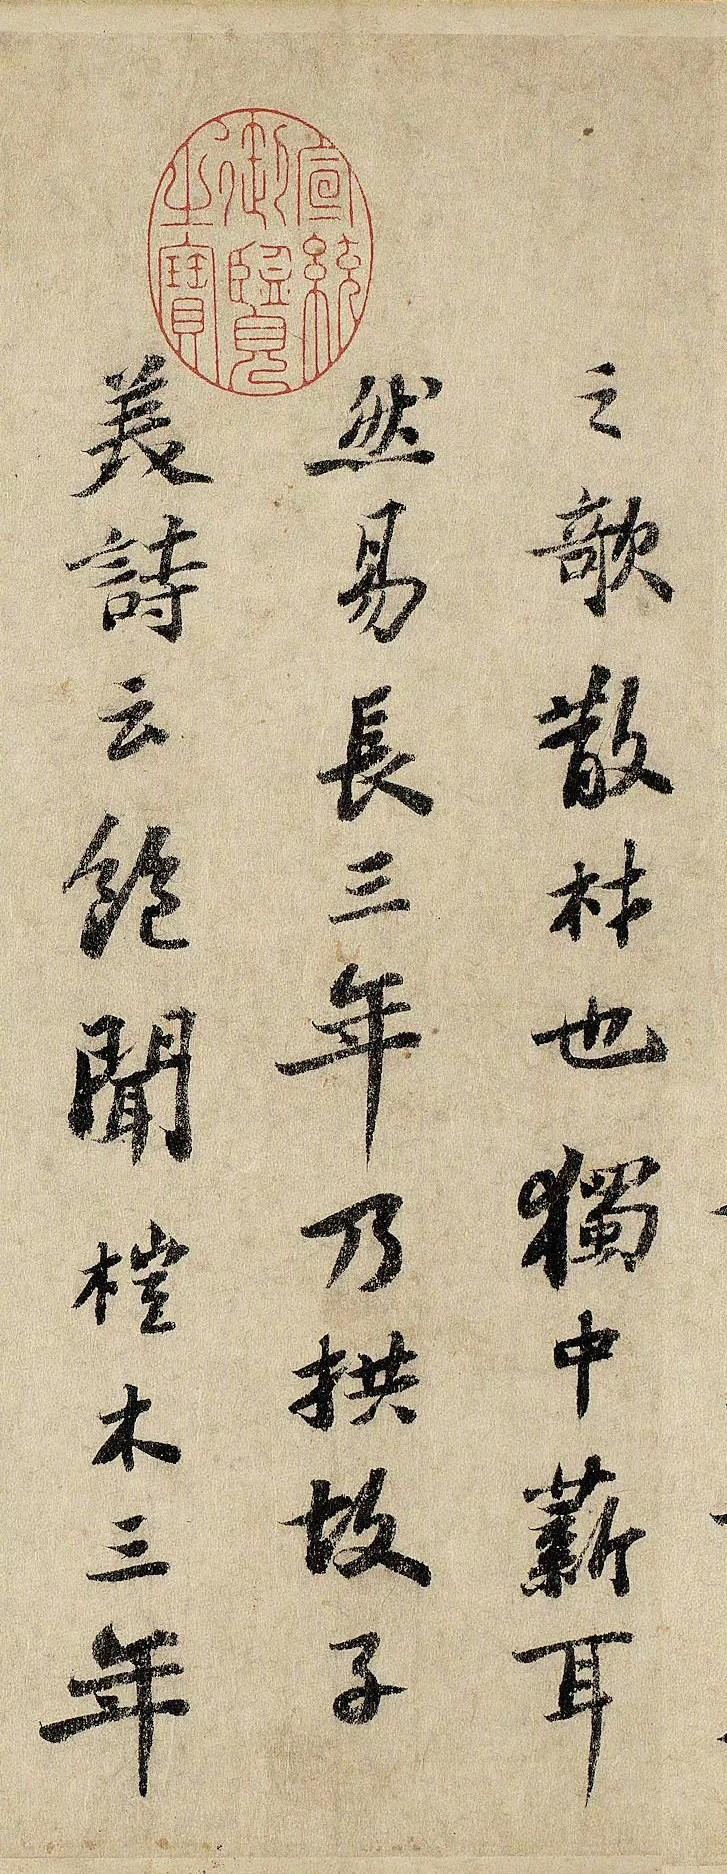 之歌散材也獨中薪耳
然易長三年乃拱故子
美詩云飽聞榿木三年
宣統
御覽
之寶